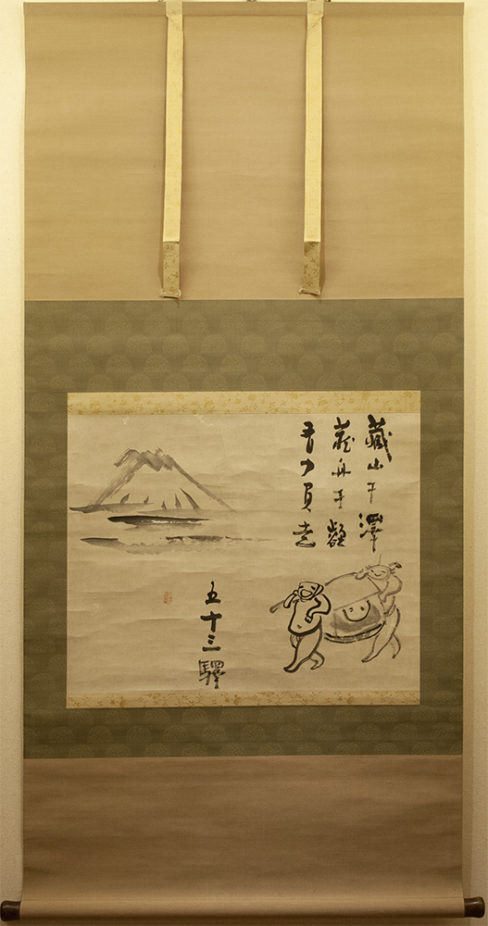 藏山于澤
藏舟于壑
有力負走
五十三驛